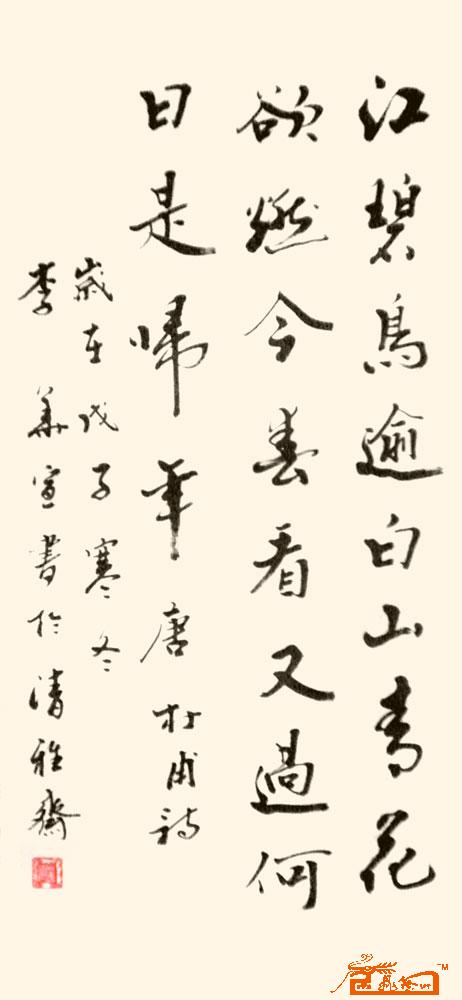 江碧鳥逾白山青花
欲燃今春看又過何
日是歸年唐杜甫詩
歲在戊子寒冬
李華宣書於清雅齋